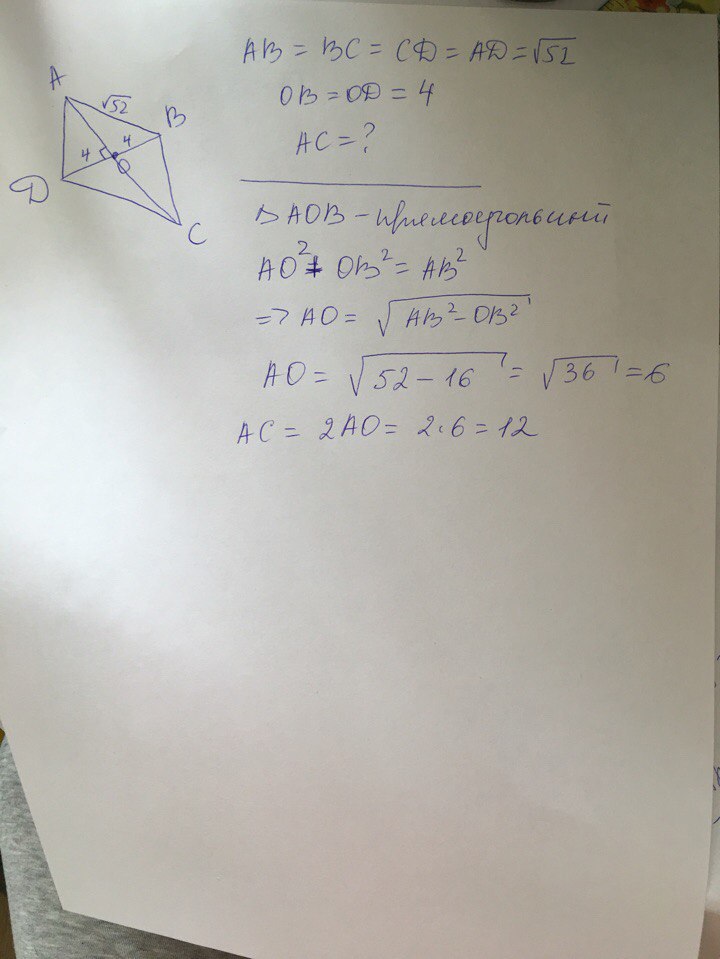 A
√52
B
4
4
O
D
C
AB = BC = CD = AD = √52
OB = OD = 4
AC = ?
△ AOB - прямоугольный
AO² + OB² = AB²
=> AO = √AB² - OB²
AO = √52 - 16 = √36 = 6
AC = 2AO = 2·6 = 12